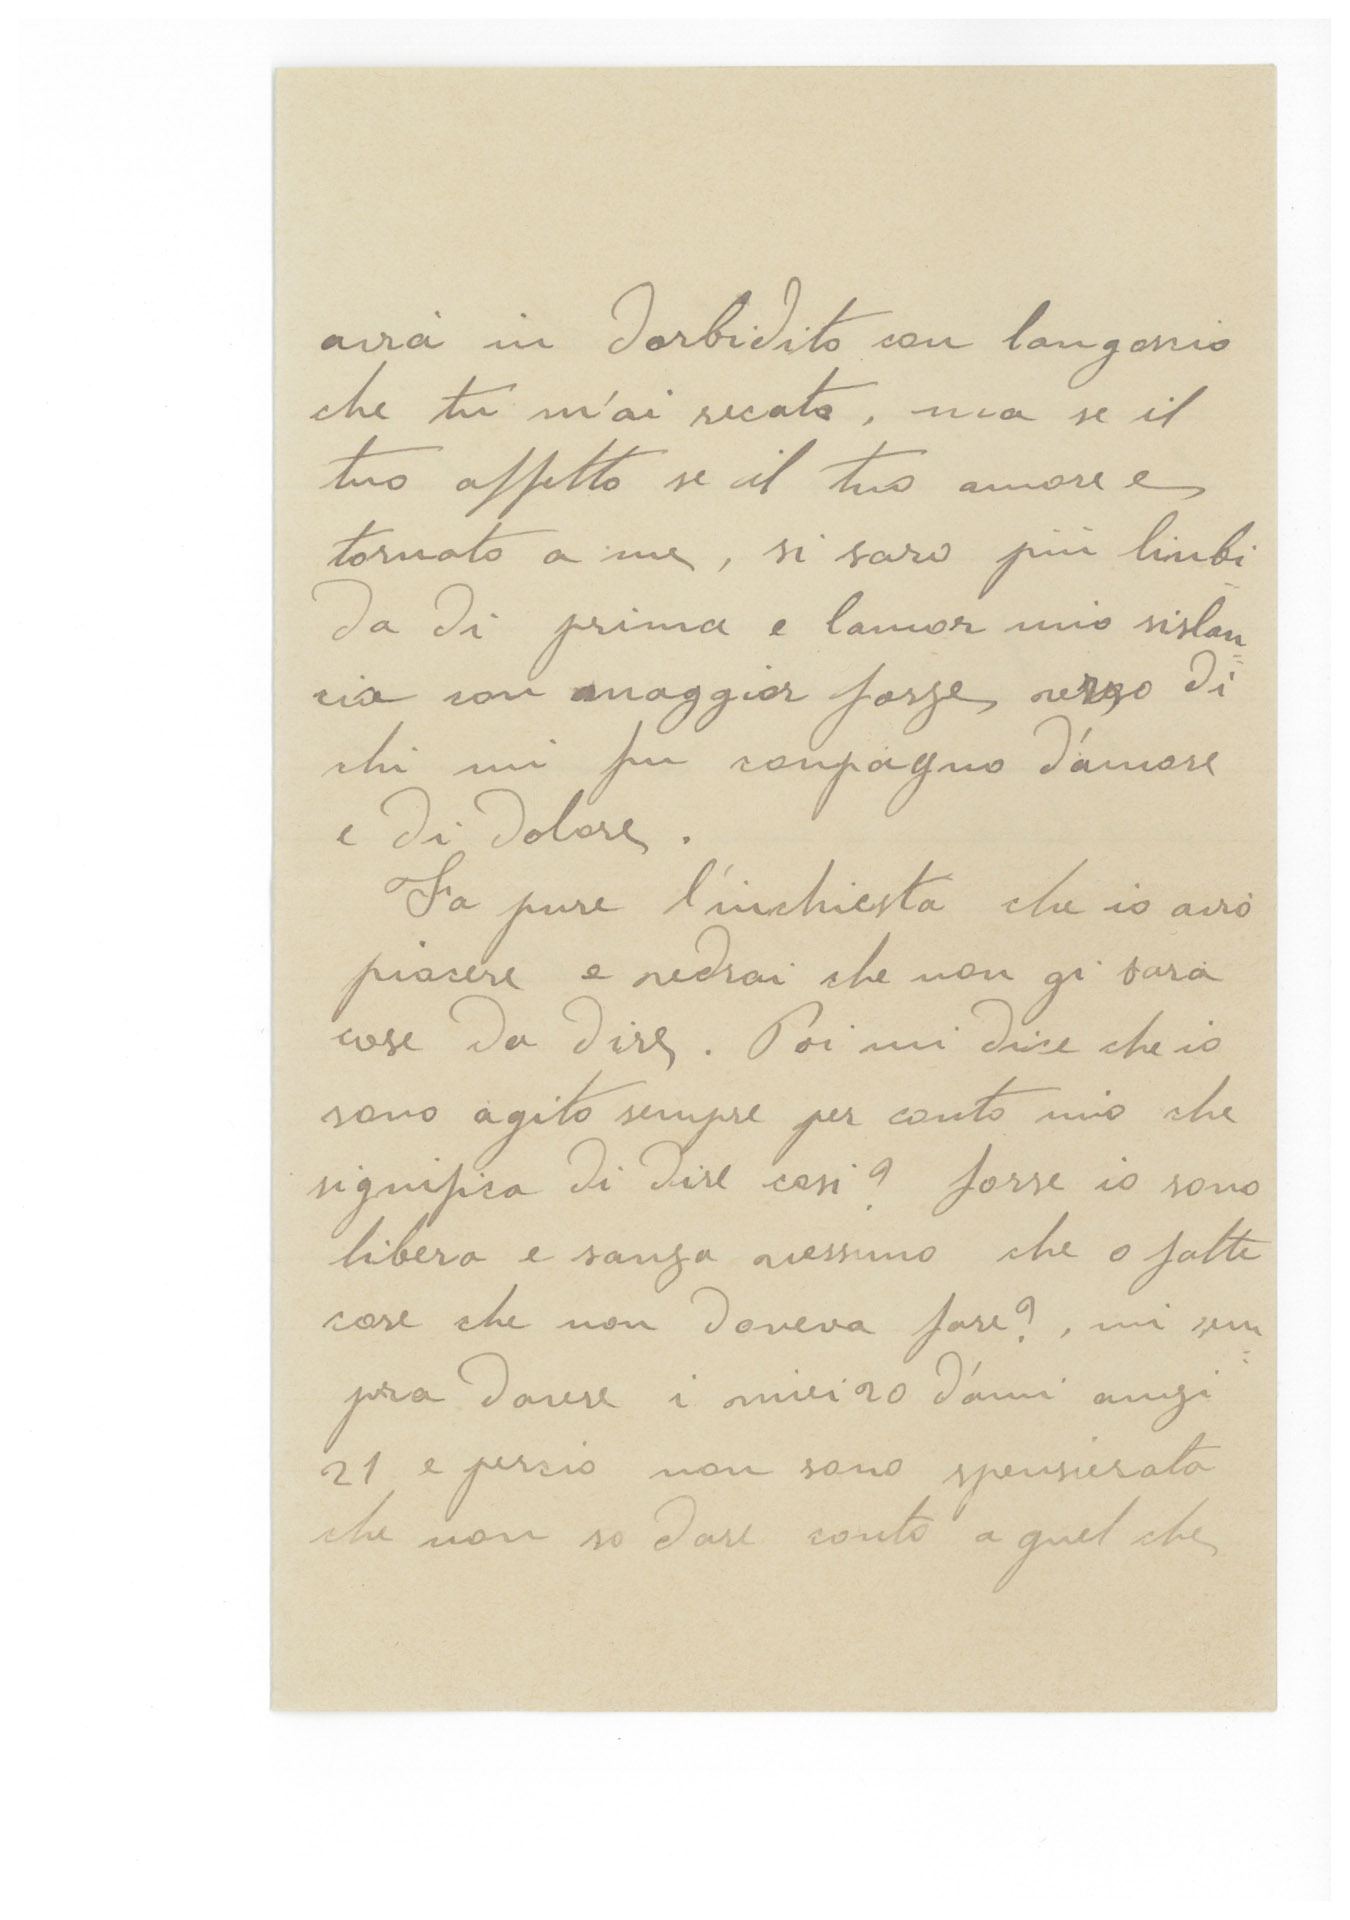 avrà in dorbidito con langossio
che tu m'ai recato, ma se il
tuo affetto se il tuo amore e
tornato a me, si saro più linbi
da di prima e lamor mio sislan=
cia con maggior forze verso di
chi mi fu conpagno d'amore
e di dolore.
Fa pure l'inchiesta che io avrò
piacere e vedrai che non gi sarà
cose da dire. Poi mi dice che io
sono agito sempre per conto mio che
significa di dire cosi? forse io sono
libera e sanza nessuno che o fatte
cose che non doveva fare?, mi sem=
pra davere i miei 20 d'anni anzi
21 e percio non sono spensierata
che non so dare conto a quel che